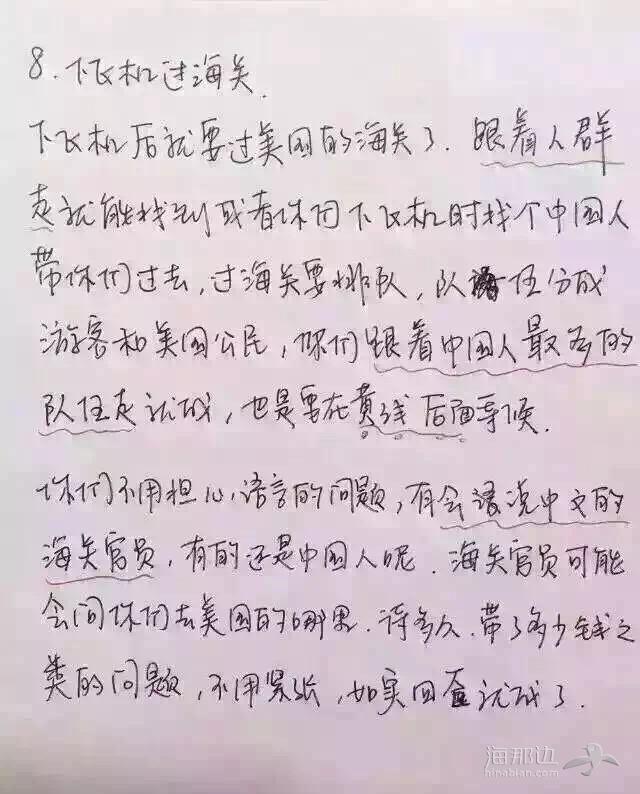 8.下飞机过海关.
下飞机后就要过美国的海关了.跟着人群
走就能找到或者你们下飞机时找个中国人
带你们过去,过海关要排队,队伍分成
游客和美国公民,你们跟着中国人最多的
队伍走就成,也是要在黄线后面等候.
你们不用担心语言的问题,有会说中文的
海关官员,有的还是中国人呢.海关官员可能
会问你们去美国的哪里.待多久.带了多少钱之
类的问题,不用紧张,如实回答就成了.
海那边
hinabian.com